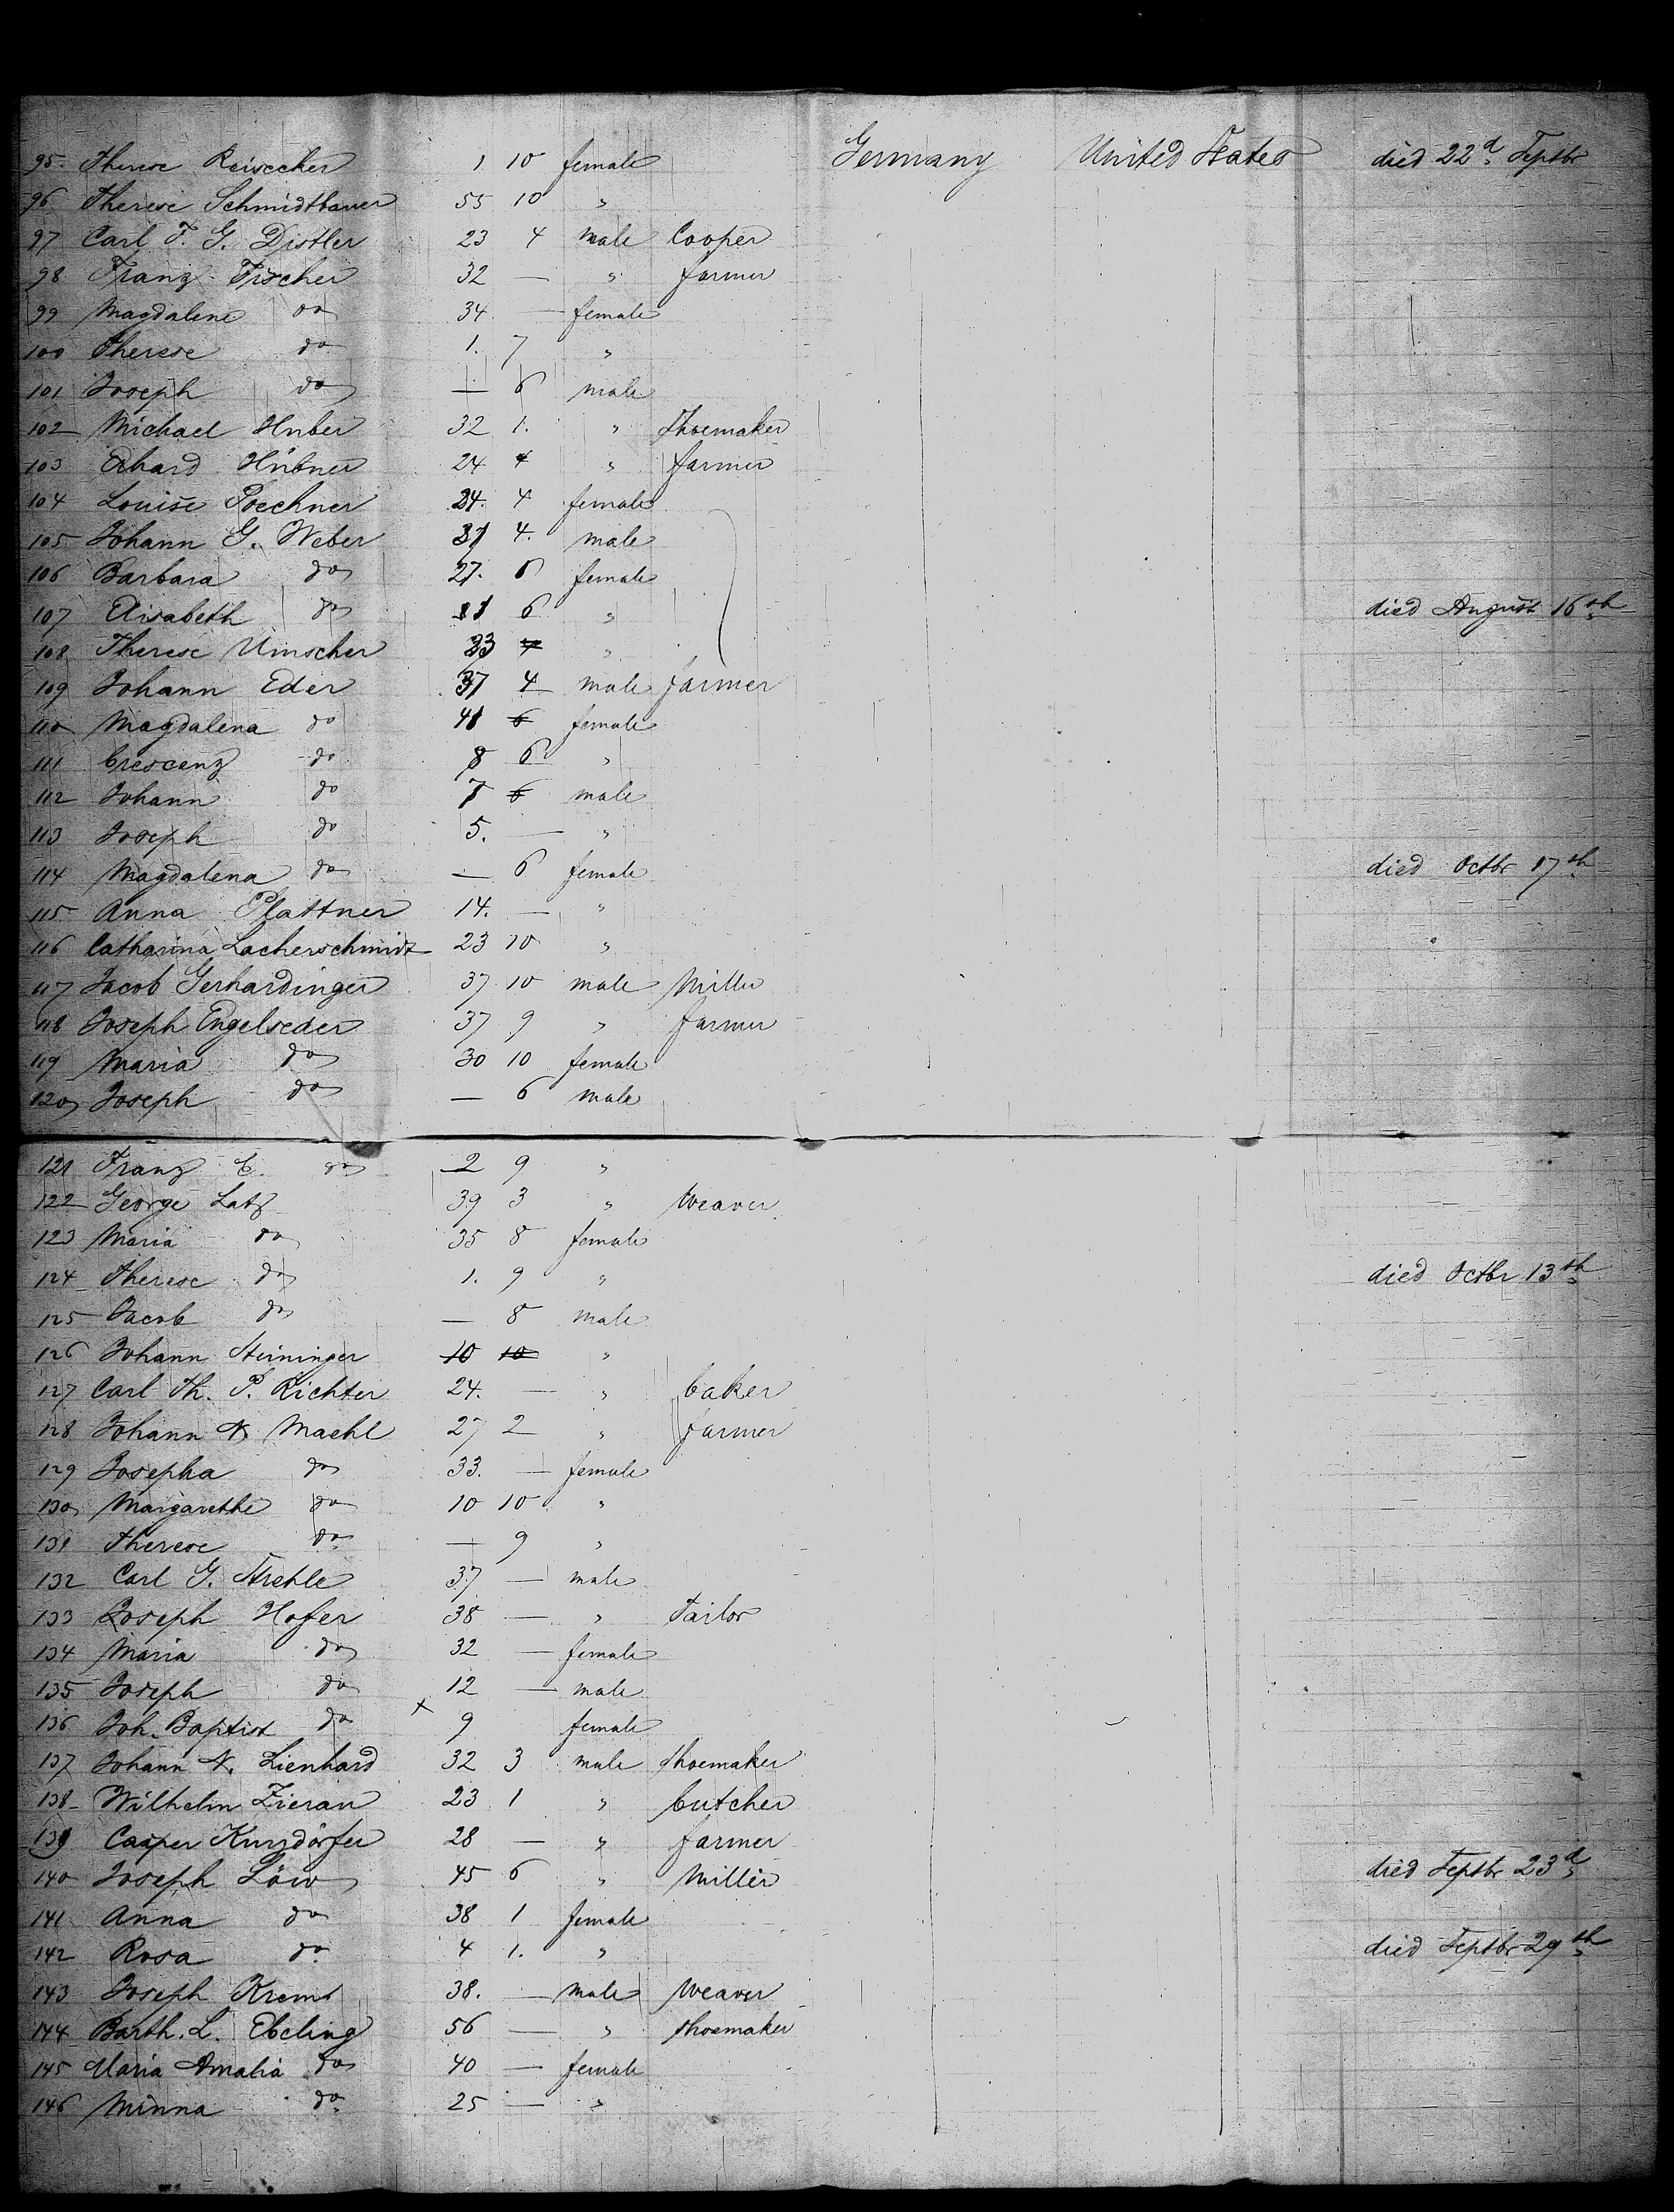 95. Therese Reisecker 1. 10 female Germany United States died 22d Septbr
96 Therese Schmidtbauer 55 10 "
97 Carl F. G. Distler 23 4 male Cooper
98 Franz Fischer 32 — " farmer
99 Magdalene do 34 — female
100 Therese do 1. 7 "
101 Joseph do — 6 male
102 Michael Huber 32 1. " Shoemaker
103 Erhard Hübner 24 4 " farmer
104 Louise Poechner 24. 4 female
105 Johann G. Weber 31 4. male
106 Barbara do 27. 6 female
107 Elisabeth do 6 " died August 16th
108 Therese 33 "
109 Johann Eder 37 4 male farmer
110 Magdalena do 41 6 female
111 Crescenz do 8 6 "
112 Johann do 7 6 male
113 Joseph do 5. — "
114 Magdalena do — 6 female died Octbr 17th
115 Anna Plattner 14. — "
116 Catharina Lacherschmidt 23 10 "
117 Jacob Gerhardinger 37 10 male Miller
118 Joseph Engelseder 37 9 " farmer
119 Maria do 30 10 female
120 Joseph do — 6 male
121 Franz E. do 2 9 "
122 George Latz 39 3 " Weaver
123 Maria do 35 8 female
124 Therese do 1. 9 " died Octbr 13th
125 Jacob do — 8 male
126 Johann Steininger 10 10 "
127 Carl Th. P. Richter 24. — " baker
128 Johann N. Maehl 27 2 " farmer
129 Josepha do 33. — female
130 Margarethe do 10 10 "
131 Therese do — 9 "
132 Carl G. Strehle 37 — male
133 Joseph Hofer 38 — " Tailor
134 Maria do 32 — female
135 Joseph do 12 — male
136 Joh. Baptist do x 9 female
137 Johann N. Lienhard 32 3 male Shoemaker
138 Wilhelm Zieran 23 1 " butcher
139 Casper Kurzdörfer 28 — " farmer
140 Joseph Löw 45 6 " Miller died Septbr 23d
141 Anna do 38 1 female
142 Rosa do 4 1. " died Septbr 29th
143 Joseph Krems 38. — male Weaver
144 Barth. L. Ebeling 56 — " shoemaker
145 Maria Amalia do 40 — female
146 Minna do 25 — "